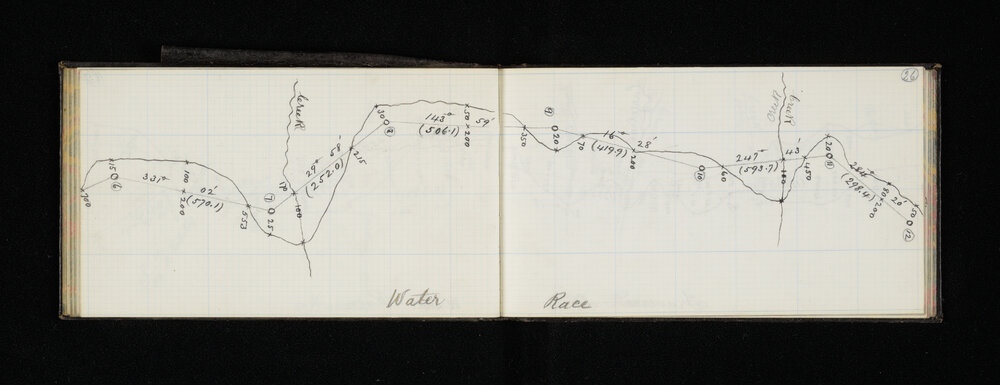 26
Creek
Creek
Creek
700
15
6
331°
02'
(570.1)
100
200
553
7
25
170
100
29°
58'
(252.0)
215
30
8
143°
59'
(506.1)
50
200
350
9
20
70
16°
28'
(419.9)
200
10
60
247°
43'
(593.7)
100
450
20
11
224°
20'
(298.4)
80
200
50
12
Water Race